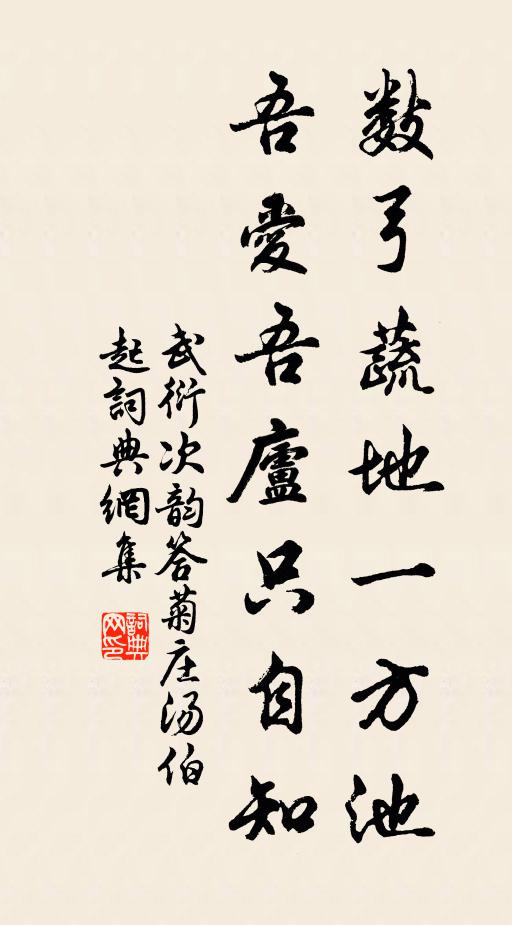 数弓蔬地一方池
吾愛吾廬只自知
武衍次韵答菊庄汤伯
起詞典網集
詞典网印